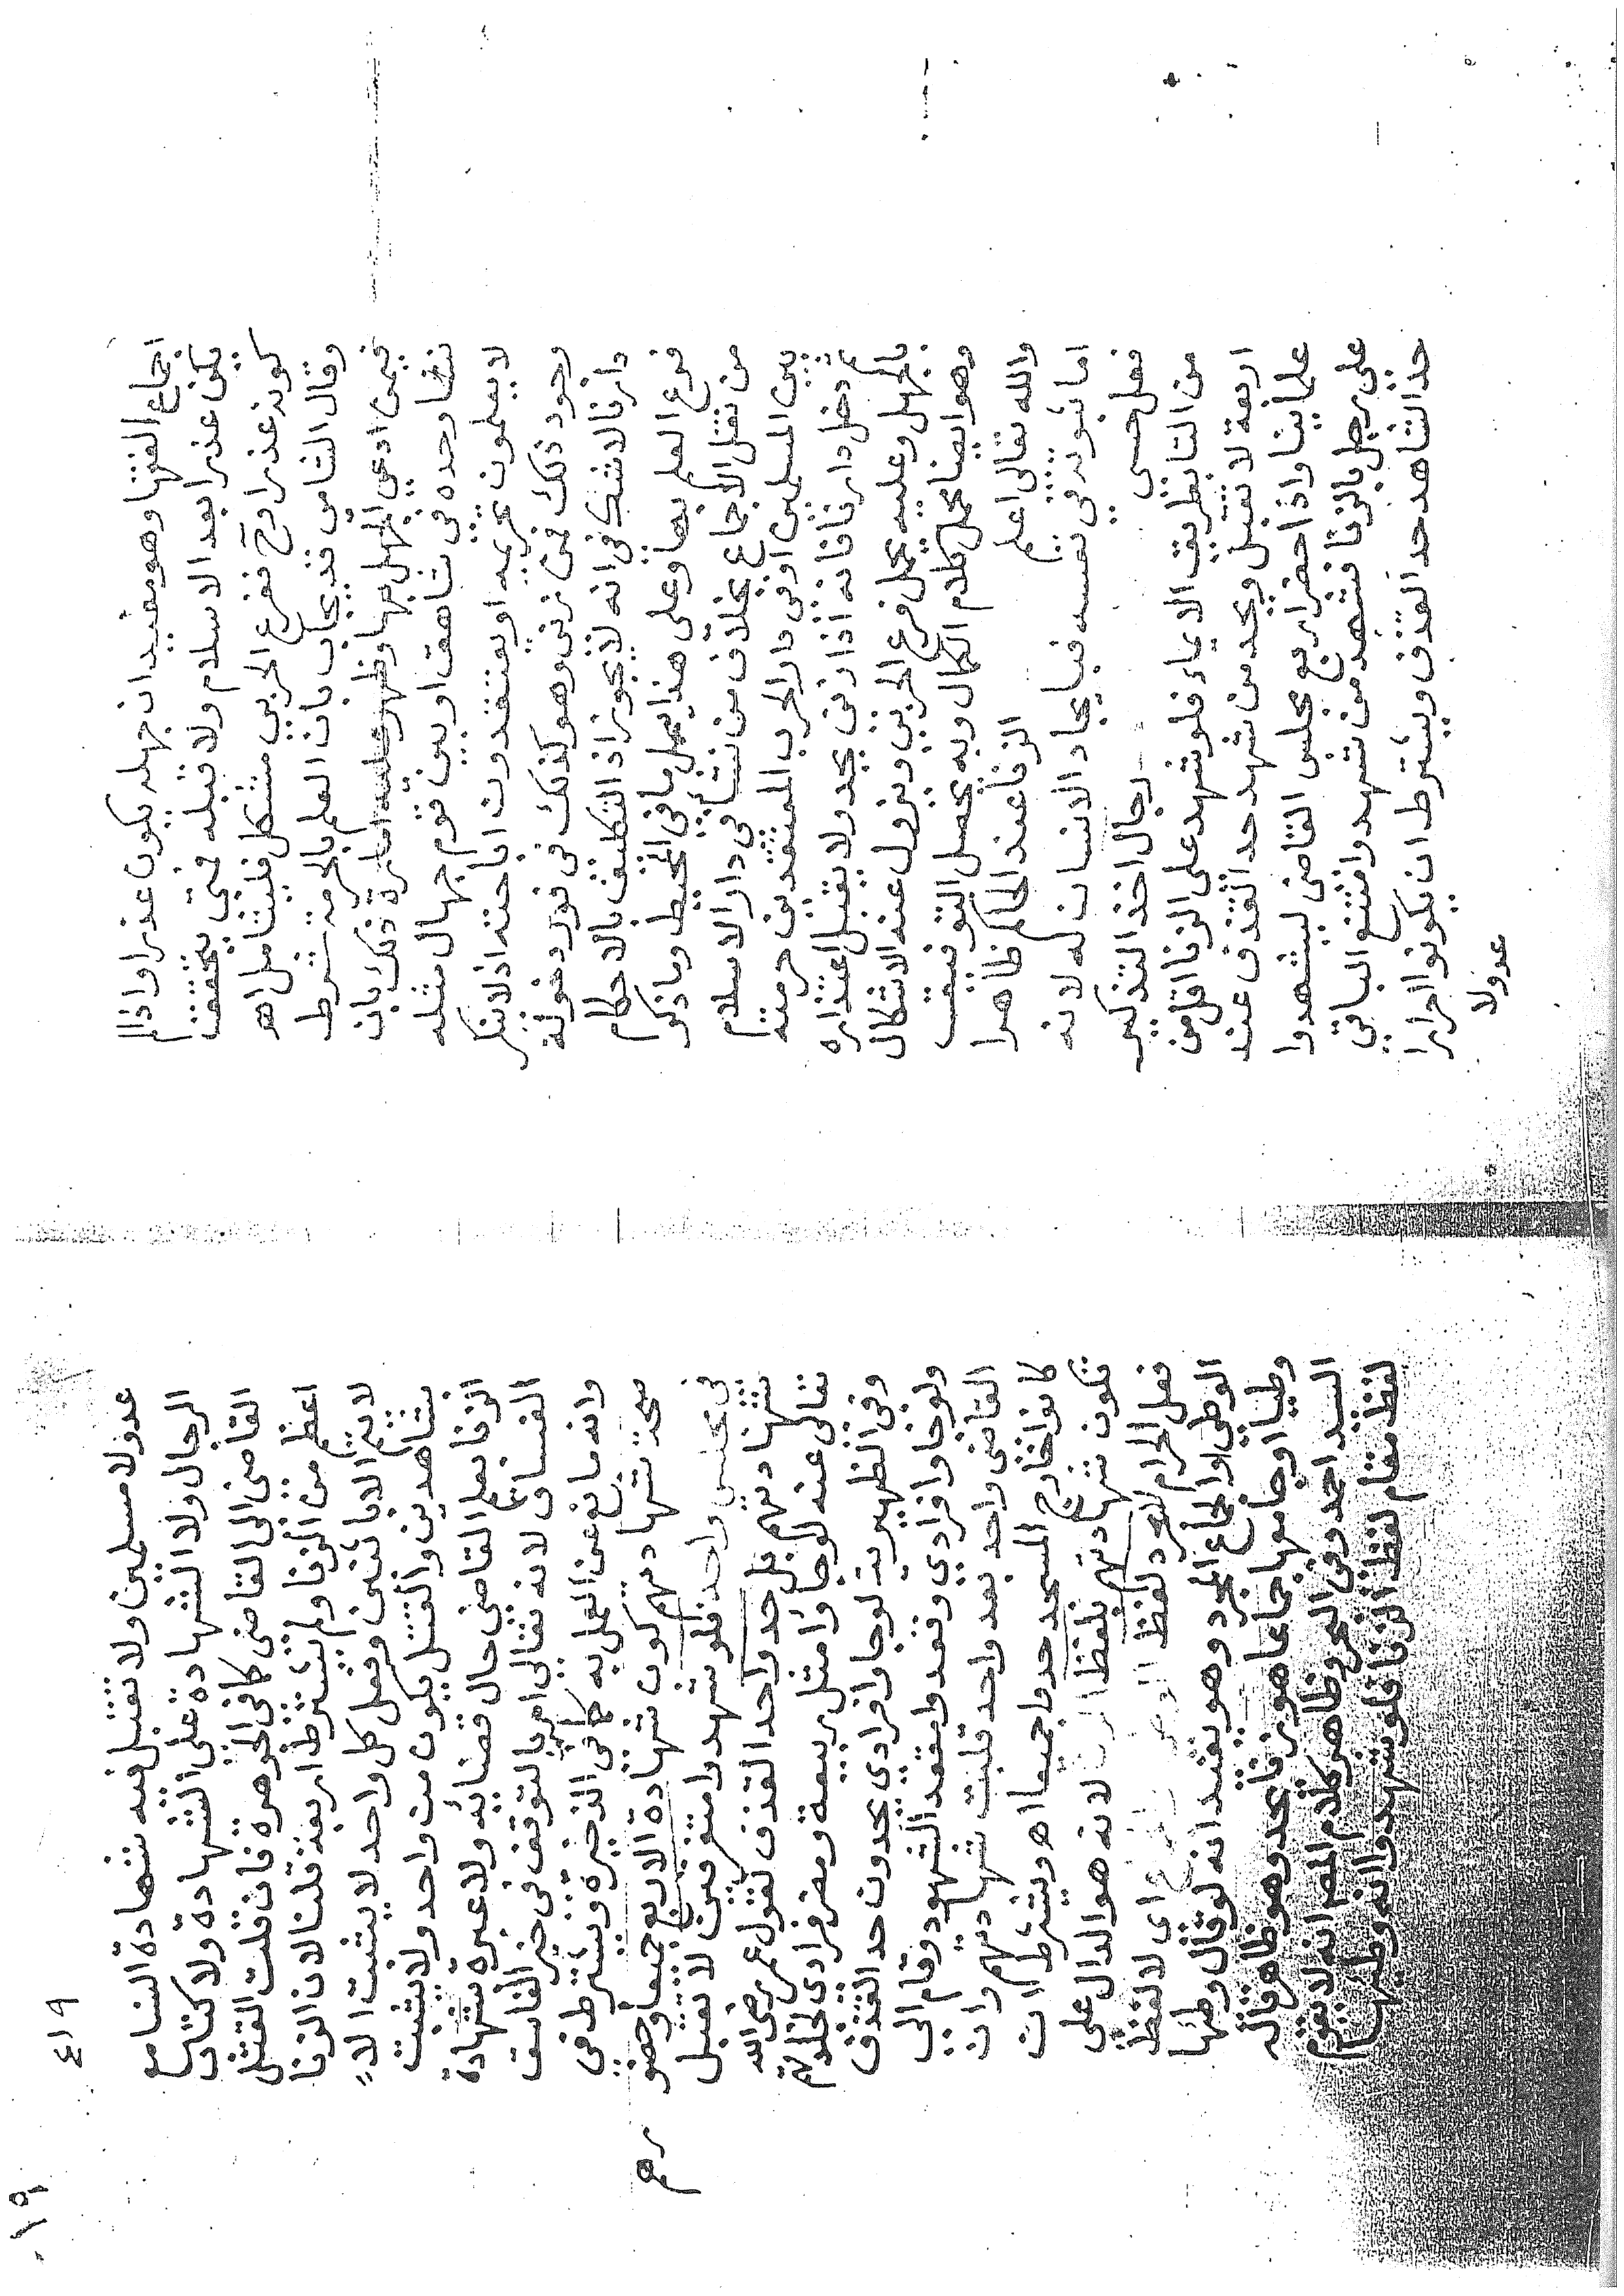 اجماع الفقها وهو مفيد ان جهله يكون عذرا واذا لم
يكن عذرا بعد الاسلام ولا قبله فمتى يتحقق
كونه عذرا وح ففرع الحربي مشكل فليتامل اهـ
وقال الشامي قد يجاب بان العلم بالحرمة شرط
فيمن ادعى الجهل بها وظهر عليه امارة ذلك بان
نشا وحده في شاهق او بين قوم جهال مثله
لا يعلمون تحريمه او يعتقدون اباحته اذ لا ينكر
وجود ذلك فمن زنى وهو كذلك في فور دخوله
دارنا لا شك في انه لا يحد اذ التكليف بالاحكام
فرع العلم بها وعلى هذا يحمل ما في المحيط وما ذكر
من نقل الاجماع بخلاف من نشا في دار الاسلام
بين المسلمين او في دار الحرب المعتقدين حرمته
ثم دخل دارنا فانه اذا زنى يحد ولا يقبل اعتذاره
بالجهل وعليه يحمل فرع الحربي ويزول عنه الاشكال
وهو ايضا محمل كلام الكمال وبه يحصل التوفيق
والله تعالى اعلم الزنا عند الحاكم ظاهرا
اما ثبوته في نفسه فبايجاد الانسان له لانه
فعل حسي رجال اخذ التذكير
من التا بطريق الايماء فلو شهد على الزنا اقل من
اربعة لا تقبل ويحد من شهد حد القذف عند
علمائنا واذا حضر اربع مجلس القاضي ليشهدوا
على رجل بالزنا فشهد من شهد وامتنع الباقي
حد الشاهد حد القذف ويشترط ان يكونوا احرارا
عدولا
٤١٩
١٩
عدولا مسلمين ولا تقبل فيه شهادة النسا مع
الرجال ولا الشهادة على الشهادة ولا كتاب
القاضي الى القاضي كما في الجوهرة فان قلت القتل
اعظم من الزنا ولم تشترط اربعة قلنا لان الزنا
لا يتم الا باثنين وفعل كل واحد لا يثبت الا
بشاهدين والقتل يكون من واحد ولا يثبت
الزنا بعلم القاضي حال قضائه ولا عبرة بشهادة
الفساق لانه تعالى امر بالتوقف في خبر الفاسق
وانه مانع عن العمل به كما في الذخيرة ويشترط في
صحة شهادتهم كون شهادة الاربع جميعا وحضو
رهم
في مجلس واحد فلو شهدوا متفرقين لا تقبل
شهادتهم بل حد واحد القذف لقول عمر رضي الله
تعالى عنه لو جاوا مثل ربيعة ومضر فرادى لجلدتهم
وفي الظهيرية لو جاوا فرادى يحدون حد القذف
ولو جاوا فرادى وقعدوا مقعد الشهود وقام الى
القاضي واحد بعد واحد قبلت شهادتهم وان
كانوا خارج المسجد حدوا جميعا اهـ ويشترط ان
تكون شهادتهم بلفظ الزنا لانه هو الدال على
فعل الحرام لا مجرد لفظ اي لا لفظ
الوطئ والجماع المجرد وهو يفيد انه لو قال وطئها
وطيا او جامعها جماعا هو زنا يحد وهو ظاهر قاله
السيد احمد وفي البحر وظاهر كلام المص انه لا يقوم
لفظ مقام لفظ الزنا فلو شهدوا انه وطيها